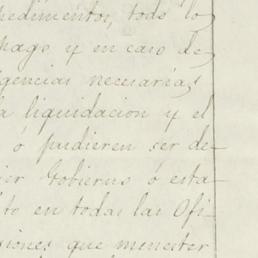 pedimentos, todo lo
hago y en caso de-
gencias necesarias
a liquidacion y el
ó pudieren ser de-
ier Gobierno ó esta-
to en todas las Ofi-
siones que menester